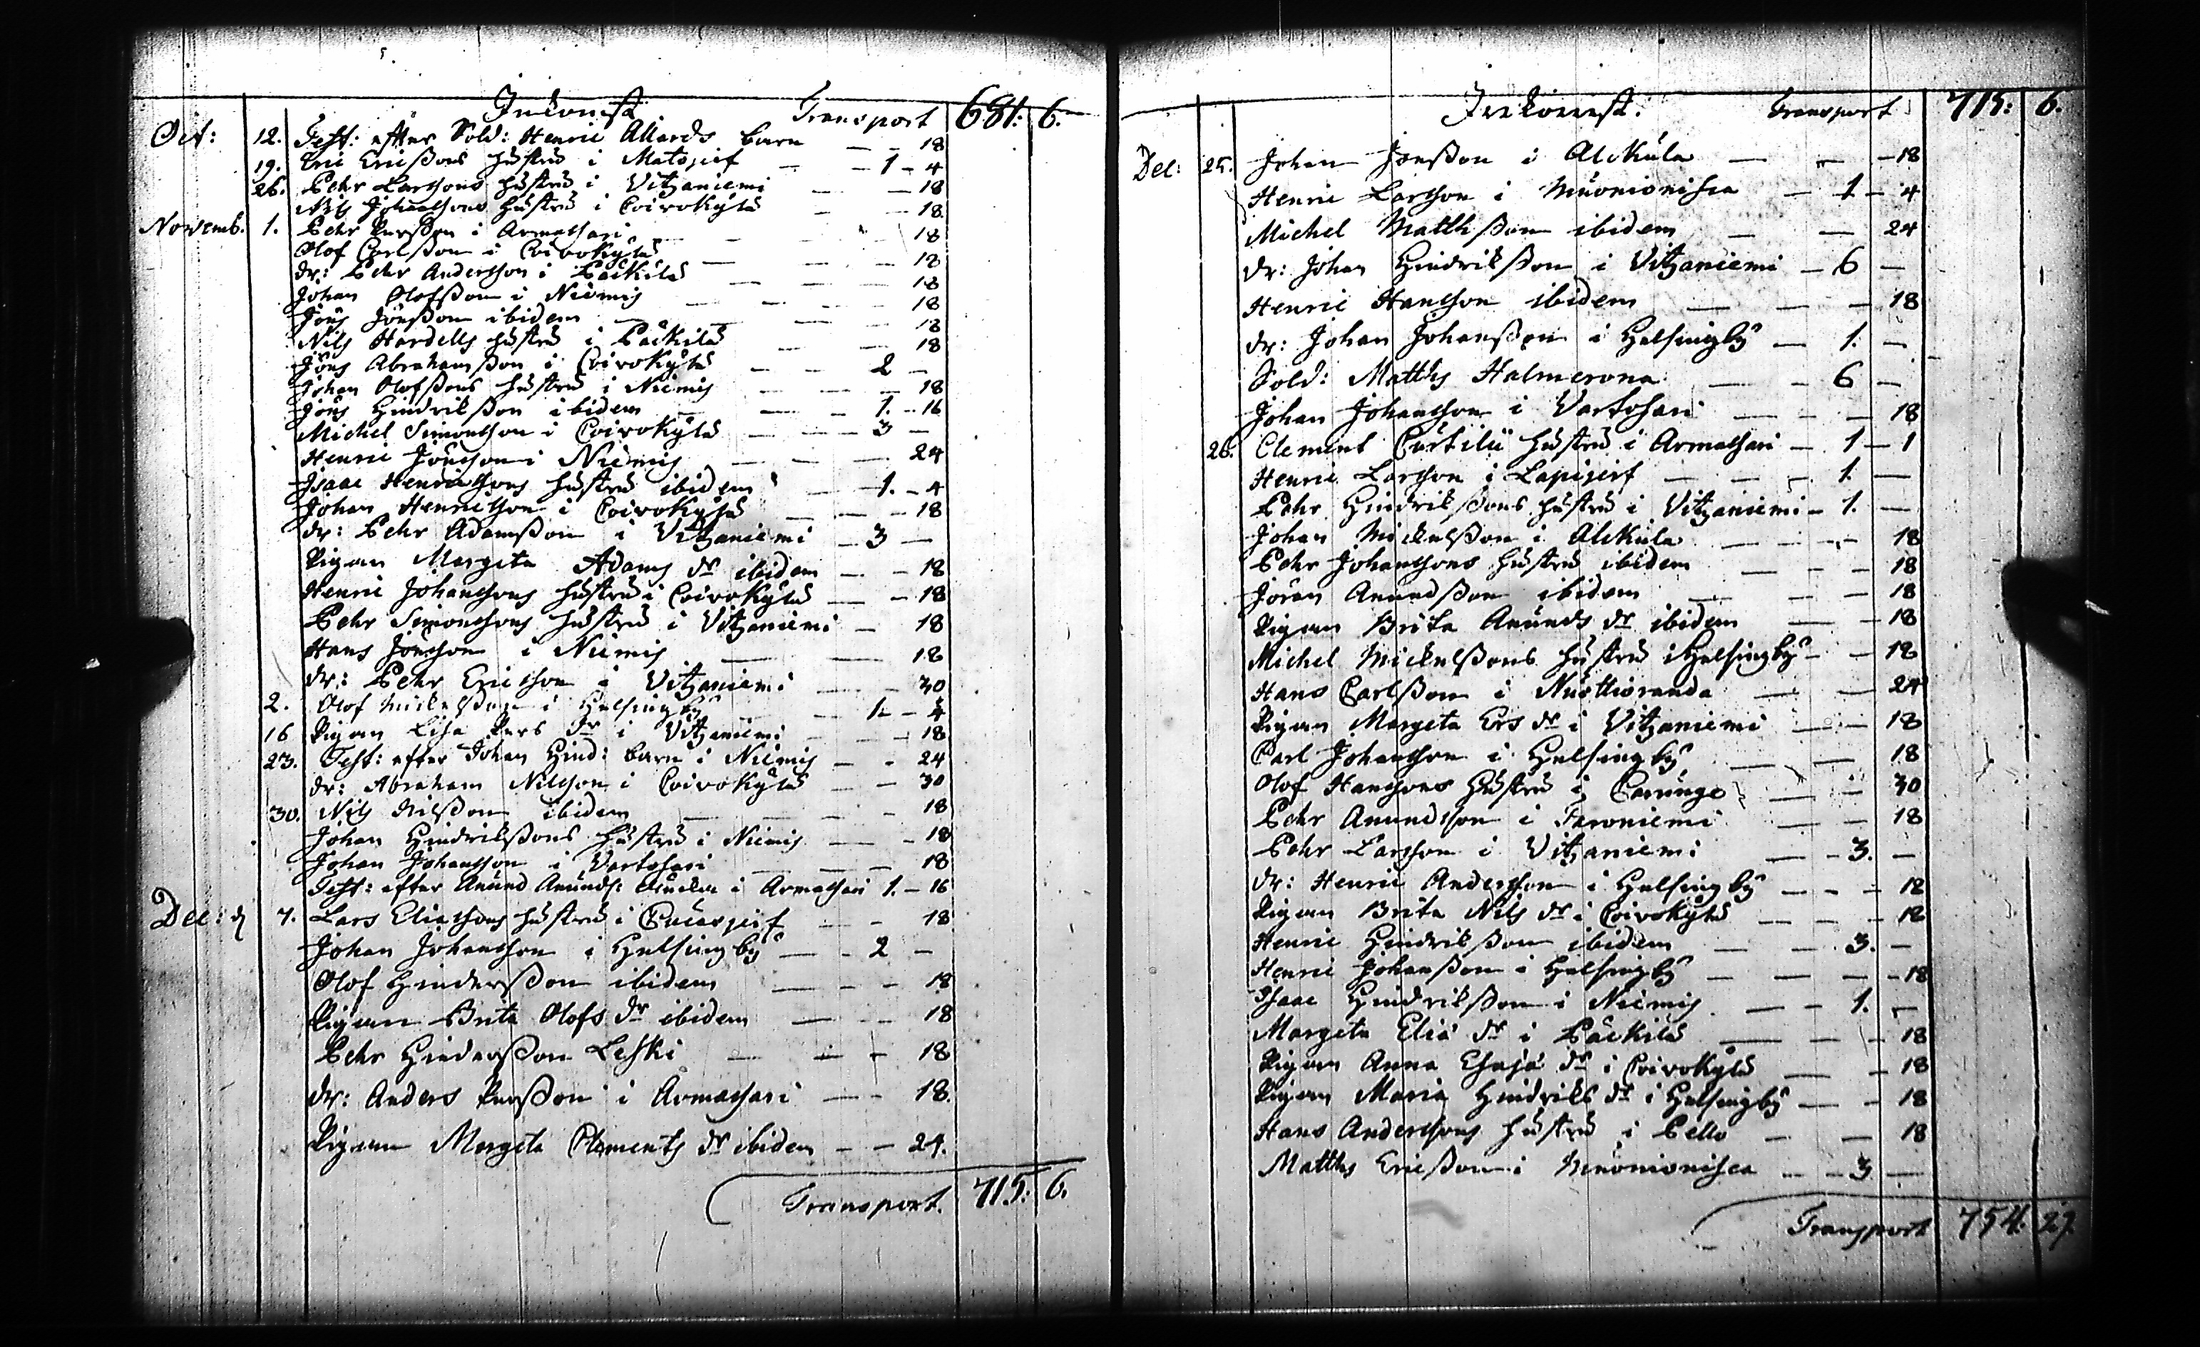 Inkomst Transport 681: 6.
Oct: 12. Test: efter Sold: Henric Allards barn — — 18
19. Eric Erißons hustru i Matojerf — — 1 – 4
26. Pehr Larssons hustru i Vitzaniemi — — 18
Nils Johanssons hustru i Coivokylä — — 18
Novemb. 1. Pehr Perßon i Armassari — — 18
Olof Carlßon i Coivokylä — — 18
dr: Pehr Andersson i Päckilä — — 18
Johan Olofßon i Niemis — — 18
Jöns Jönßon ibidem — — 18
Nils Hardells hustru i Päckilä — — 18
Jöns Abrahamßon i Coivokylä — — 2 –
Johan Olofßons hustru i Niemis — — 18
Jöns Hindrikßon ibidem — — 1. – 16
Michel Simonsson i Coivokylä — — 3 —
Henric Jönsson i Niemis — — 24
Isaac Henricssons hustru ibidem — 1. – 4
Johan Henricsson i Coivokylä — — 18
dr: Pehr Adamßon i Vitzaniemi — 3 —
Pigan Margeta Adams dr ibidem — — 18
Henric Johanssons hustru i Coivokylä — — 18
Pehr Simonssons hustru i Vitzaniemi — 18
Hans Jönsson i Niemis — — 18
dr: Pehr Ericsson i Vitzaniemi — — 30
2. Olof Mickelßon i Helsingby — 1. – 4
16 Pigan Lisa Pers dr i Vitzaniemi — — 18
23. Test: efter Johan Hind: barn i Niemis — - 24
dr: Abraham Nilsson i Coivokylä — — 30
30. Nils Nilßon ibidem — — 18
Johan Hindrikßons hustru i Niemis — — 18
Johan Johansson i Vartosari — — 18
Test: efter Anund Anunds: Encka i Armassari 1. – 16
Dec: d 7. Lars Eliassons hustru i — — 18
Johan Johansson i Helsingby — - 2 –
Olof Hinderßon ibidem — — 18
Pigan Brita Olofs dr ibidem — — 18
Pehr Hinderßon Leski — — 18
dr: Anders Perßon i Armassari — — 18.
Pigan Margeta Clements dr ibidem — — 24.
Transport. 715: 6.
Inkomst. Transport 715: 6.
Dec: 25. Johan Jönßon i Alckula — — 18
Henric Larsson i Muonionisca — 1 – 4
Michel Matthßon ibidem — — 24
dr: Johan Hindrikßon i Vitzaniemi — 6 —
Henric Hansson ibidem — — 18
dr: Johan Johanßon i Helsingby — 1. —
Sold: Matths Halmerona — — 6 —
Johan Johansson i Vartosari — — 18
26. Clement hustru i Armassari — 1 – 1
Henric Larsson i Lapijerf — — 1. —
Pehr Hindrikßons hustru i Vitzaniemi — 1. —
Johan Mickelßon i Alckula — — 18
Pehr Johanssons hustru ibidem — — 18
Jöran Anundßon ibidem — — 18
Pigan Brita Anunds dr ibidem — — 18
Michel Mickelßons hustru i Helsingby — — 18
Hans Carlßon i Nuottioranda — — 24
Pigan Margeta Ers dr i Vitzaniemi — — 18
Carl Johansson i Helsingby — — 18
Olof Hanssons hustru i Caunge — — 30
Pehr Anundsson i Taroniemi — — 18
Pehr Larsson i Vitzaniemi — - 3. —
dr: Henric Andersson i Helsingby — — 12
Pigan Brita Nils dr i Coivokylä — — 12
Henric Hindrikßon ibidem — — 3. —
Henric Johanßon i Helsingby — — 18
Isaac Hindrikßon i Niemis — — 1. —
Margeta Eliä dr i Päckilä — — 18
Pigan Anna Esajä dr i Coivokylä — — 18
Pigan Maria Hindriks dr i Helsingby — — 18
Hans Anderssons hustru i Pello — — 18
Matths Erißon i Muonionisca — - 3 —
Transport 754. 27.